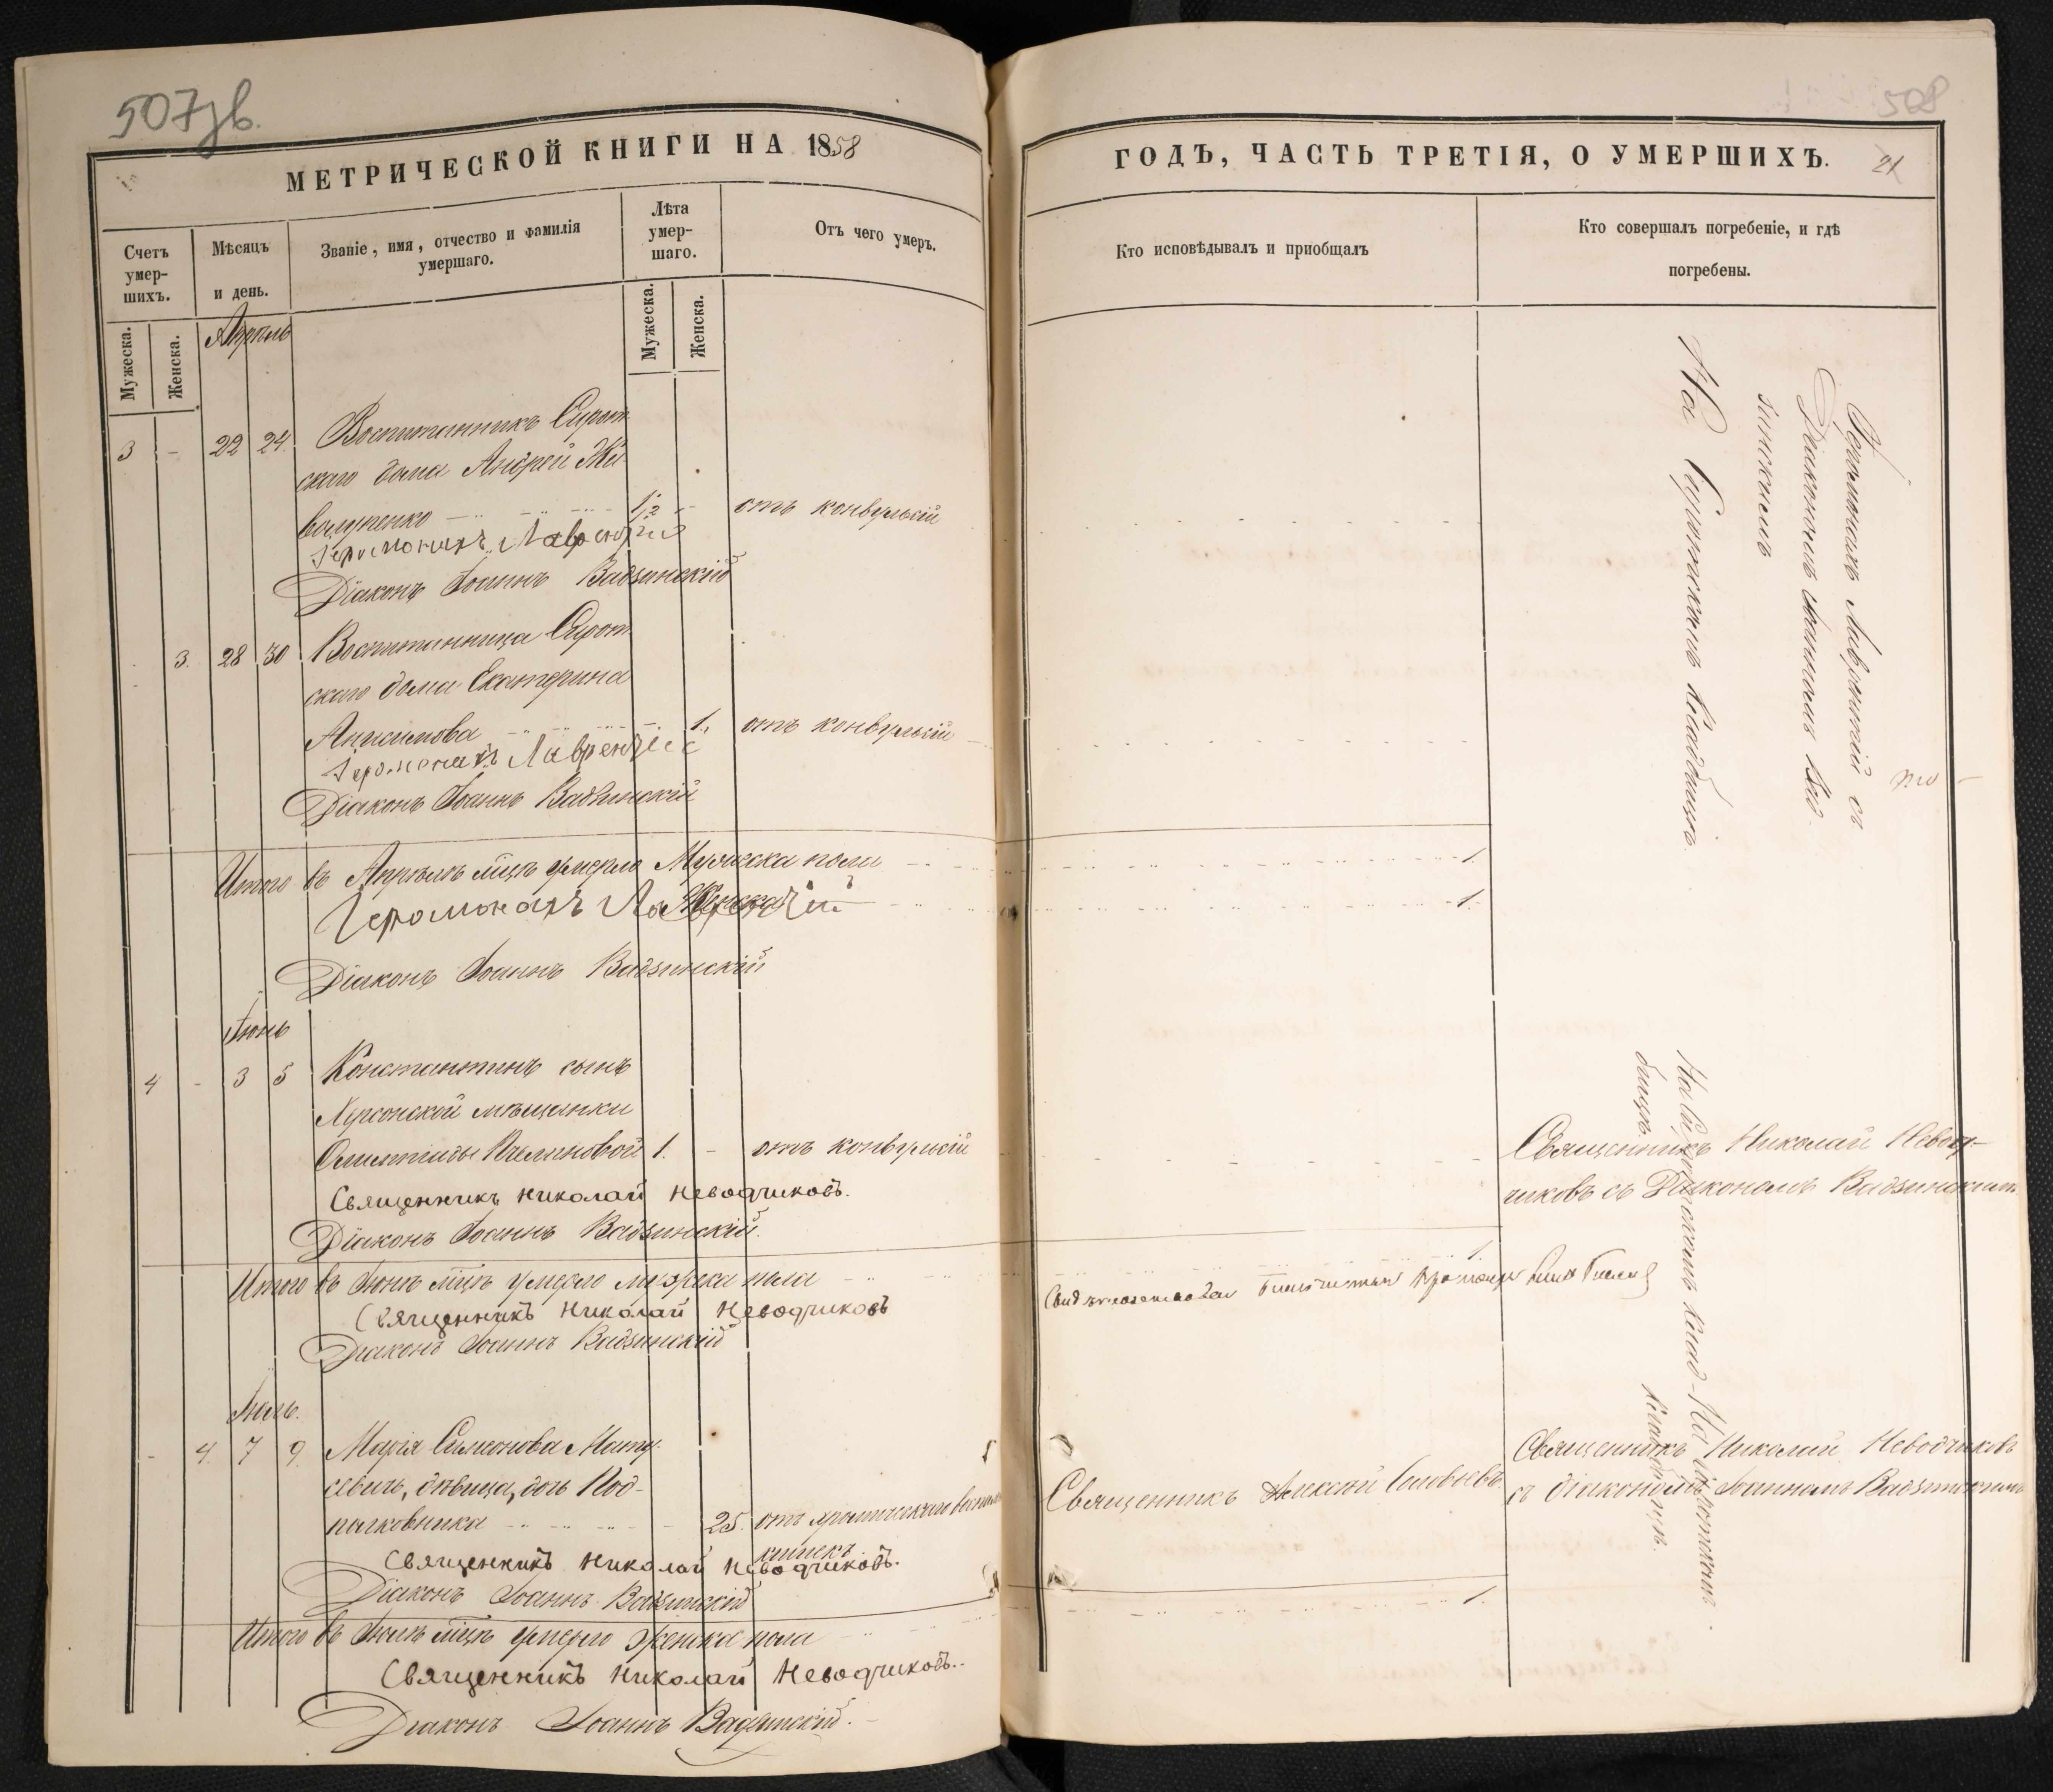 507 зв.
МЕТРИЧЕСКОЙ КНИГИ НА 1858
Счетъ умер-шихъ.
Мѣсяцъ и день.
Званіе, имя, отчество и фамилія умершаго.
Лѣта умер-шаго.
Отъ чего умеръ.
Мужеска.
Женска.
Мужеска.
Женска.
Апрѣль
3 - 22 24. Воспитанникъ Сирот
скаго дома Андрей
1½ - отъ конвульсій
Іеромонахъ Лаврентій
Діаконъ Іоаннъ Вадзинскій
3. 28 30 Воспитанница Сирот
скаго дома Екатерина
Анисимова 1. отъ конвульсій
Іеромонахъ Лаврентій
Діаконъ Іоаннъ Вадзинскій
Итого въ Апрѣлѣ мцѣ умерло Мужеска пола
Женска
Іеромонахъ Лаврентій
Діаконъ Іоаннъ Вадзинскій
Іюнь
4 - 3 5 Константинъ сынъ
Херсонской мѣщанки
Олимпіады 1. - отъ конвульсій
Священникъ Николай Неводчиковъ.
Діаконъ Іоаннъ Вадзинскій.
Итого въ Іюнѣ мцѣ умерло мужеска пола
Священникъ Николай Неводчиковъ
Діаконъ Іоаннъ Вадзинскій
Іюль.
- 4. 7 9. Марія Симонова Мату-
севичъ, дѣвица, дочь Под-
полковника 25. отъ хроническаго воспал.
кишекъ
Священникъ Николай Неводчиковъ.
Діаконъ Іоаннъ Вадзинскій
Итого въ Іюлѣ мцѣ умерло женска пола
Священникъ Николай Неводчиковъ.
Діаконъ Іоаннъ Вадзинскій.
508
ГОДЪ, ЧАСТЬ ТРЕТІЯ, О УМЕРШИХЪ.
21
Кто исповѣдывалъ и приобщалъ
Кто совершалъ погребеніе, и гдѣ
погребены.
Іеромонахъ Лаврентій съ
Діакономъ Іоанномъ Вад
зинскимъ
На Сиротскомъ Кладбищѣ.
1.
1.
Священникъ Николай Невод-
чиковъ съ Діакономъ Вадзинскимъ
На Сиротскомъ клад-
бищѣ.
1.
Священникъ Алексей Соловьевъ.
Священникъ Николай Неводчиковъ
съ діакономъ Іоанномъ Вадзинскимъ
На Сиротскомъ
кладбищѣ.
1.